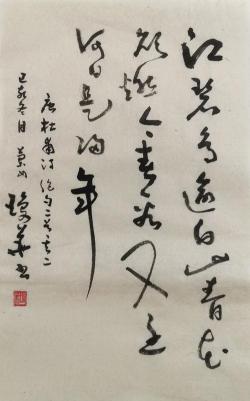 江碧鸟逾白山青花
欲燃今春看又过
何日是归年
唐杜甫诗绝句二首之二
己亥冬月